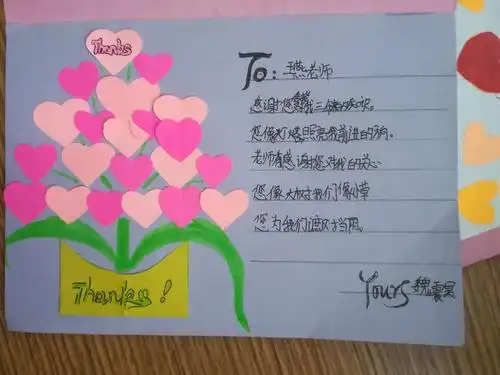 Thanks
Thanks!
To: 王燕老师
感谢您教我三年的知识。
您像灯塔照亮我前进的方向。
老师真感谢您对我的关心
您像大树对我们像小草
您为我们遮风挡雨。
Yours 魏震昊